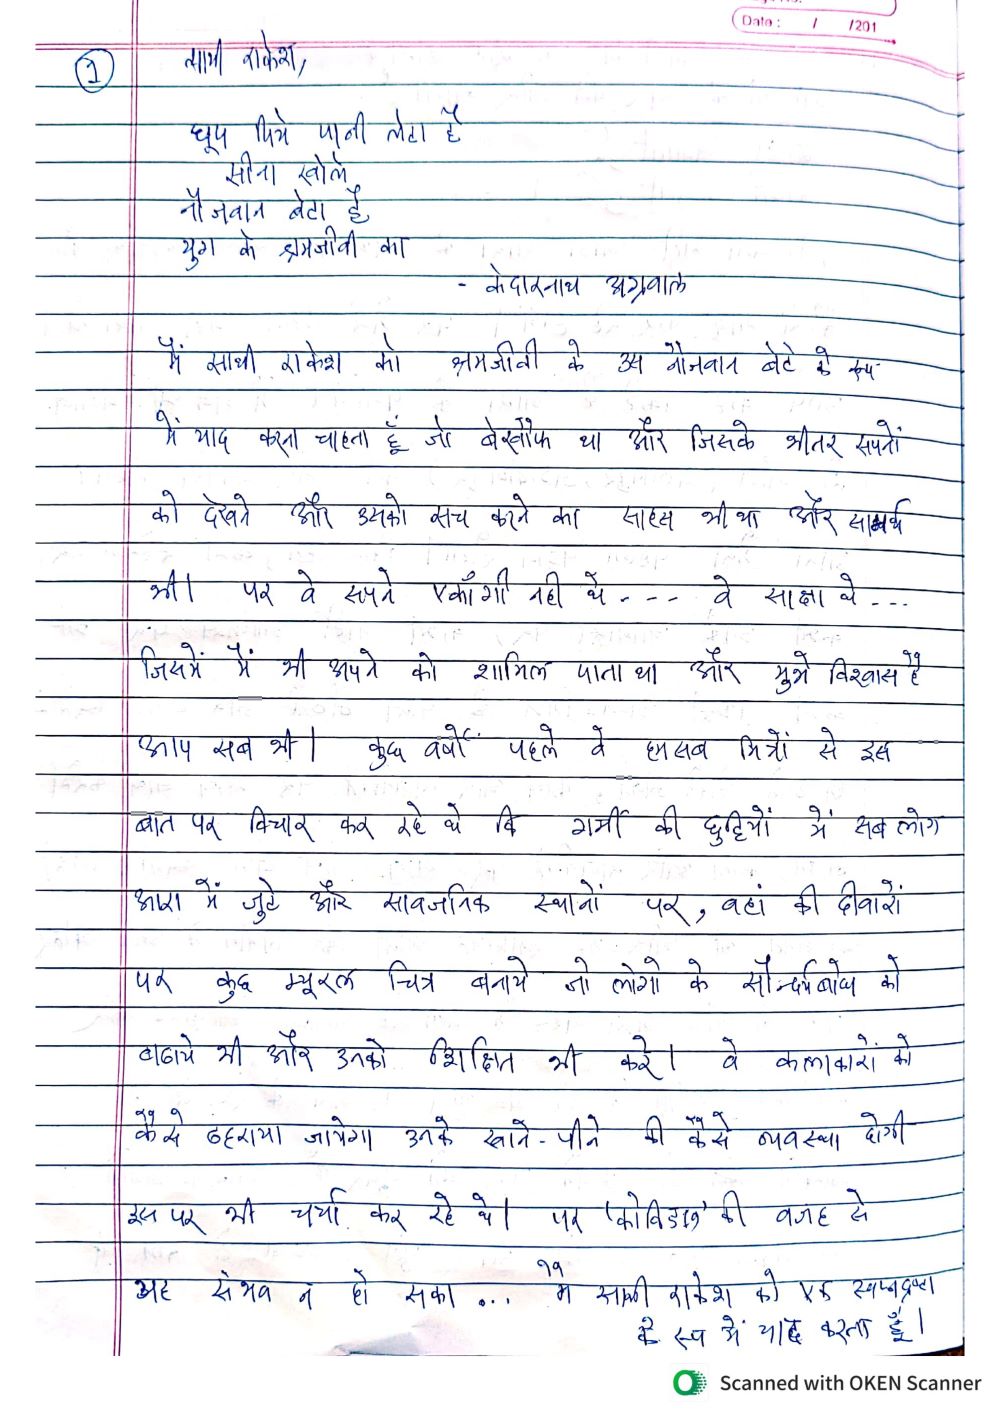 Date : / /201
1
साथी राकेश,
धूप पिये पानी लेटा है
सीना खोले
नौजवान बेटा है
युग के श्रमजीवी का
- केदारनाथ अग्रवाल
मैं साथी राकेश को श्रमजीवी के उस नौजवान बेटे के रूप
में याद करना चाहता हूँ जो बेखौफ था और जिसके भीतर सपनों
को देखने और उसको सच करने का साहस भी था और सामर्थ
भी। पर वे सपने एकाँगी नही थे---- वे साझा थे...
जिसमें मैं भी अपने को शामिल पाता था और मुझे विश्वास है
आप सब भी। कुछ वर्षों पहले वे हमसब मित्रों से इस
बात पर विचार कर रहे थे कि गर्मी की छुट्टियों में सब लोग
आरा में जुटे और सावजनिक स्थानों पर, वहां की दीवारों
पर कुछ म्यूरल चित्र बनाये जो लोगो के सौन्दर्यबोध को
बाढाये भी और उनको शिक्षित भी करे। वे कलाकारों को
कैसे ठहराया जायेगा उनके खाने-पीने की कैसे व्यवस्था होगी
इस पर भी चर्चा कर रहे थे। पर 'कोविड19' की वजह से
यह संभव न हो सका ... मैं साथी राकेश को एक स्वप्नद्रष्टा
के रूप में याद करता हूँ।
Scanned with OKEN Scanner